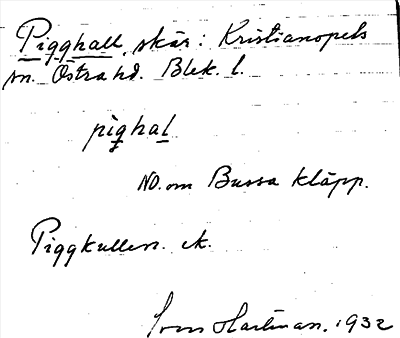 Pigghall, skär: Kristianopels
sn. Östra hd. Blek. l.
pighal
NO. om Bussa kläpp.
Piggkullen. ek.
Sven Hartman. 1932